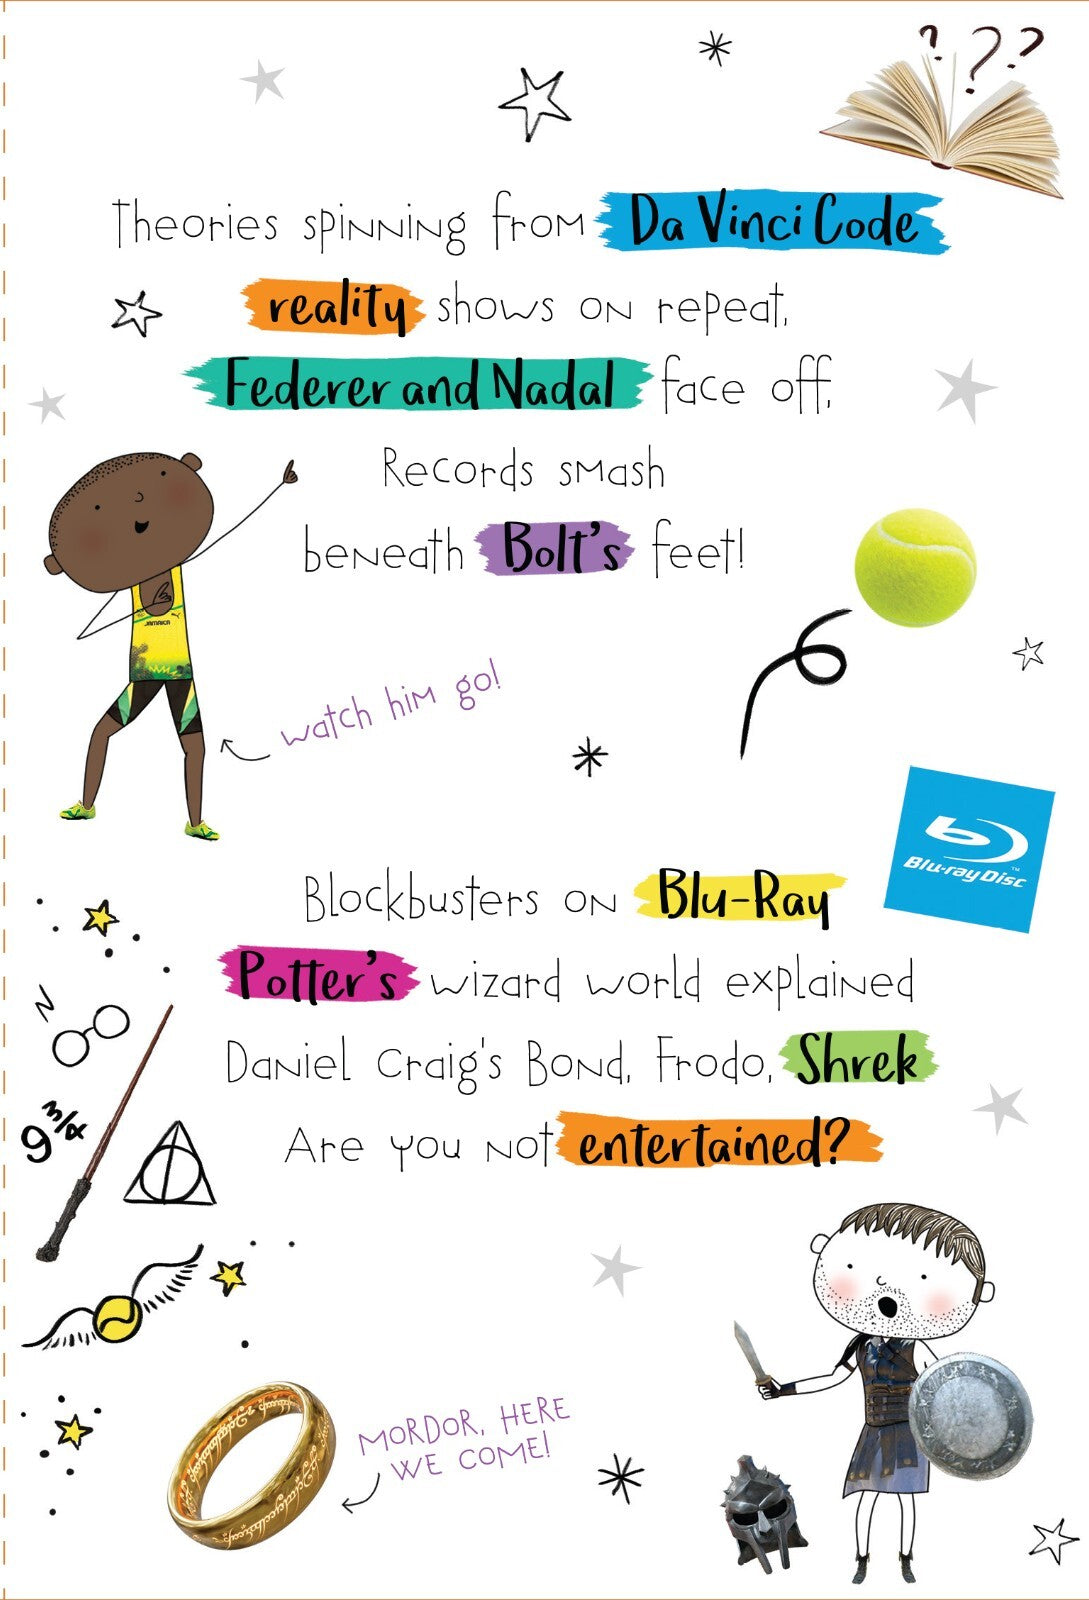 ? ? ?
Theories spinning from Da Vinci Code
reality shows on repeat,
Federer and Nadal face off,
Records smash
beneath Bolt's feet!
JAMAICA
watch him go!
Blu-ray Disc™
Blockbusters on Blu-Ray
Potter's wizard world explained
Daniel Craig's Bond, Frodo, Shrek
Are you not entertained?
9 3/4
MORDOR, HERE
WE COME!